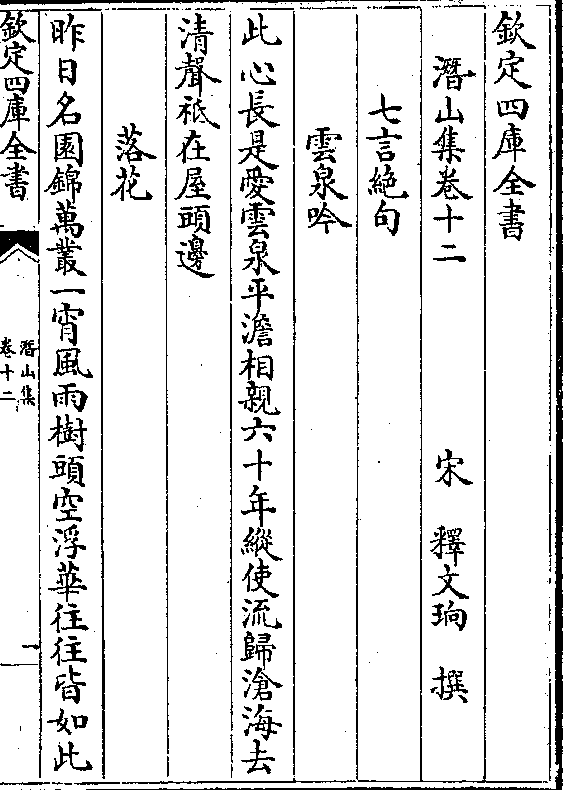 欽定四庫全書
潛山集卷十二
宋 釋文珦 撰
七言絶句
雲泉吟
此心長是愛雲泉平澹相親六十年縱使流歸滄海去
清聲祇在屋頭邊
落花
昨日名園錦萬叢一宵風雨樹頭空浮華往往皆如此
欽定四庫全書
潛山集
卷十二
一